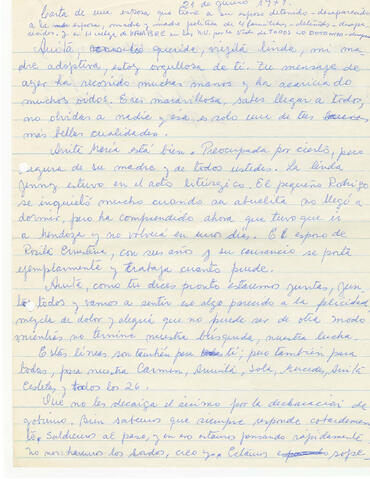 21 de junio 1977.
Carta de una esposa que tiene a su esposo detenido - desaparecido
a la esposa, madre y madre política de 4 familiares - detenidos - desapa-
recidos. y en el HUELGA DE HAMBRE en las N.U. por la Vida de TODOS LO DETENIDO - desapar
Anita, querida, viejita linda, mi ma
dre adoptiva, estoy orgullosa de ti. Tu mensaje
de ayer ha recorrido muchas manos y ha acariciado
muchos oídos. Eres maravillosa, sabes llegar a todos,
no olvidas a nadie y esa, es solo una de tus
más bellas cualidades.
Anita María está bien. Preocupada por cierto, pero
segura de su madre y de todos ustedes. La linda
Jenny estuvo en el acto litúrgico. El pequeño Rodrigo
se inquietó mucho cuando su abuelita no llegó a
dormir, pero ha comprendido ahora que tuvo que ir
a Mendoza y no volverá en unos días. El esposo de
Rosita Ernestina, con sus años y su cansancio se porta
ejemplarmente y trabaja cuanto puede.
Anita, como tú dices pronto estaremos juntas, jun
to todos y vamos a sentir algo parecido a la felicidad,
mezcla de dolor y alegría que no puede ser de otro modo
mientras no termine nuestra búsqueda, nuestra lucha.
Estas líneas son también para ti; pero también para
todas, para nuestra Carmen, Sola, Anita
y todos los 26.
Que no les decaiga el ánimo por la declaración de
gobierno. Bien sabemos que siempre responde cobardemen
te. Saldremos al paso, y en eso estamos pensando rápidamente
no nos haremos los sordos, creo y. Estamos